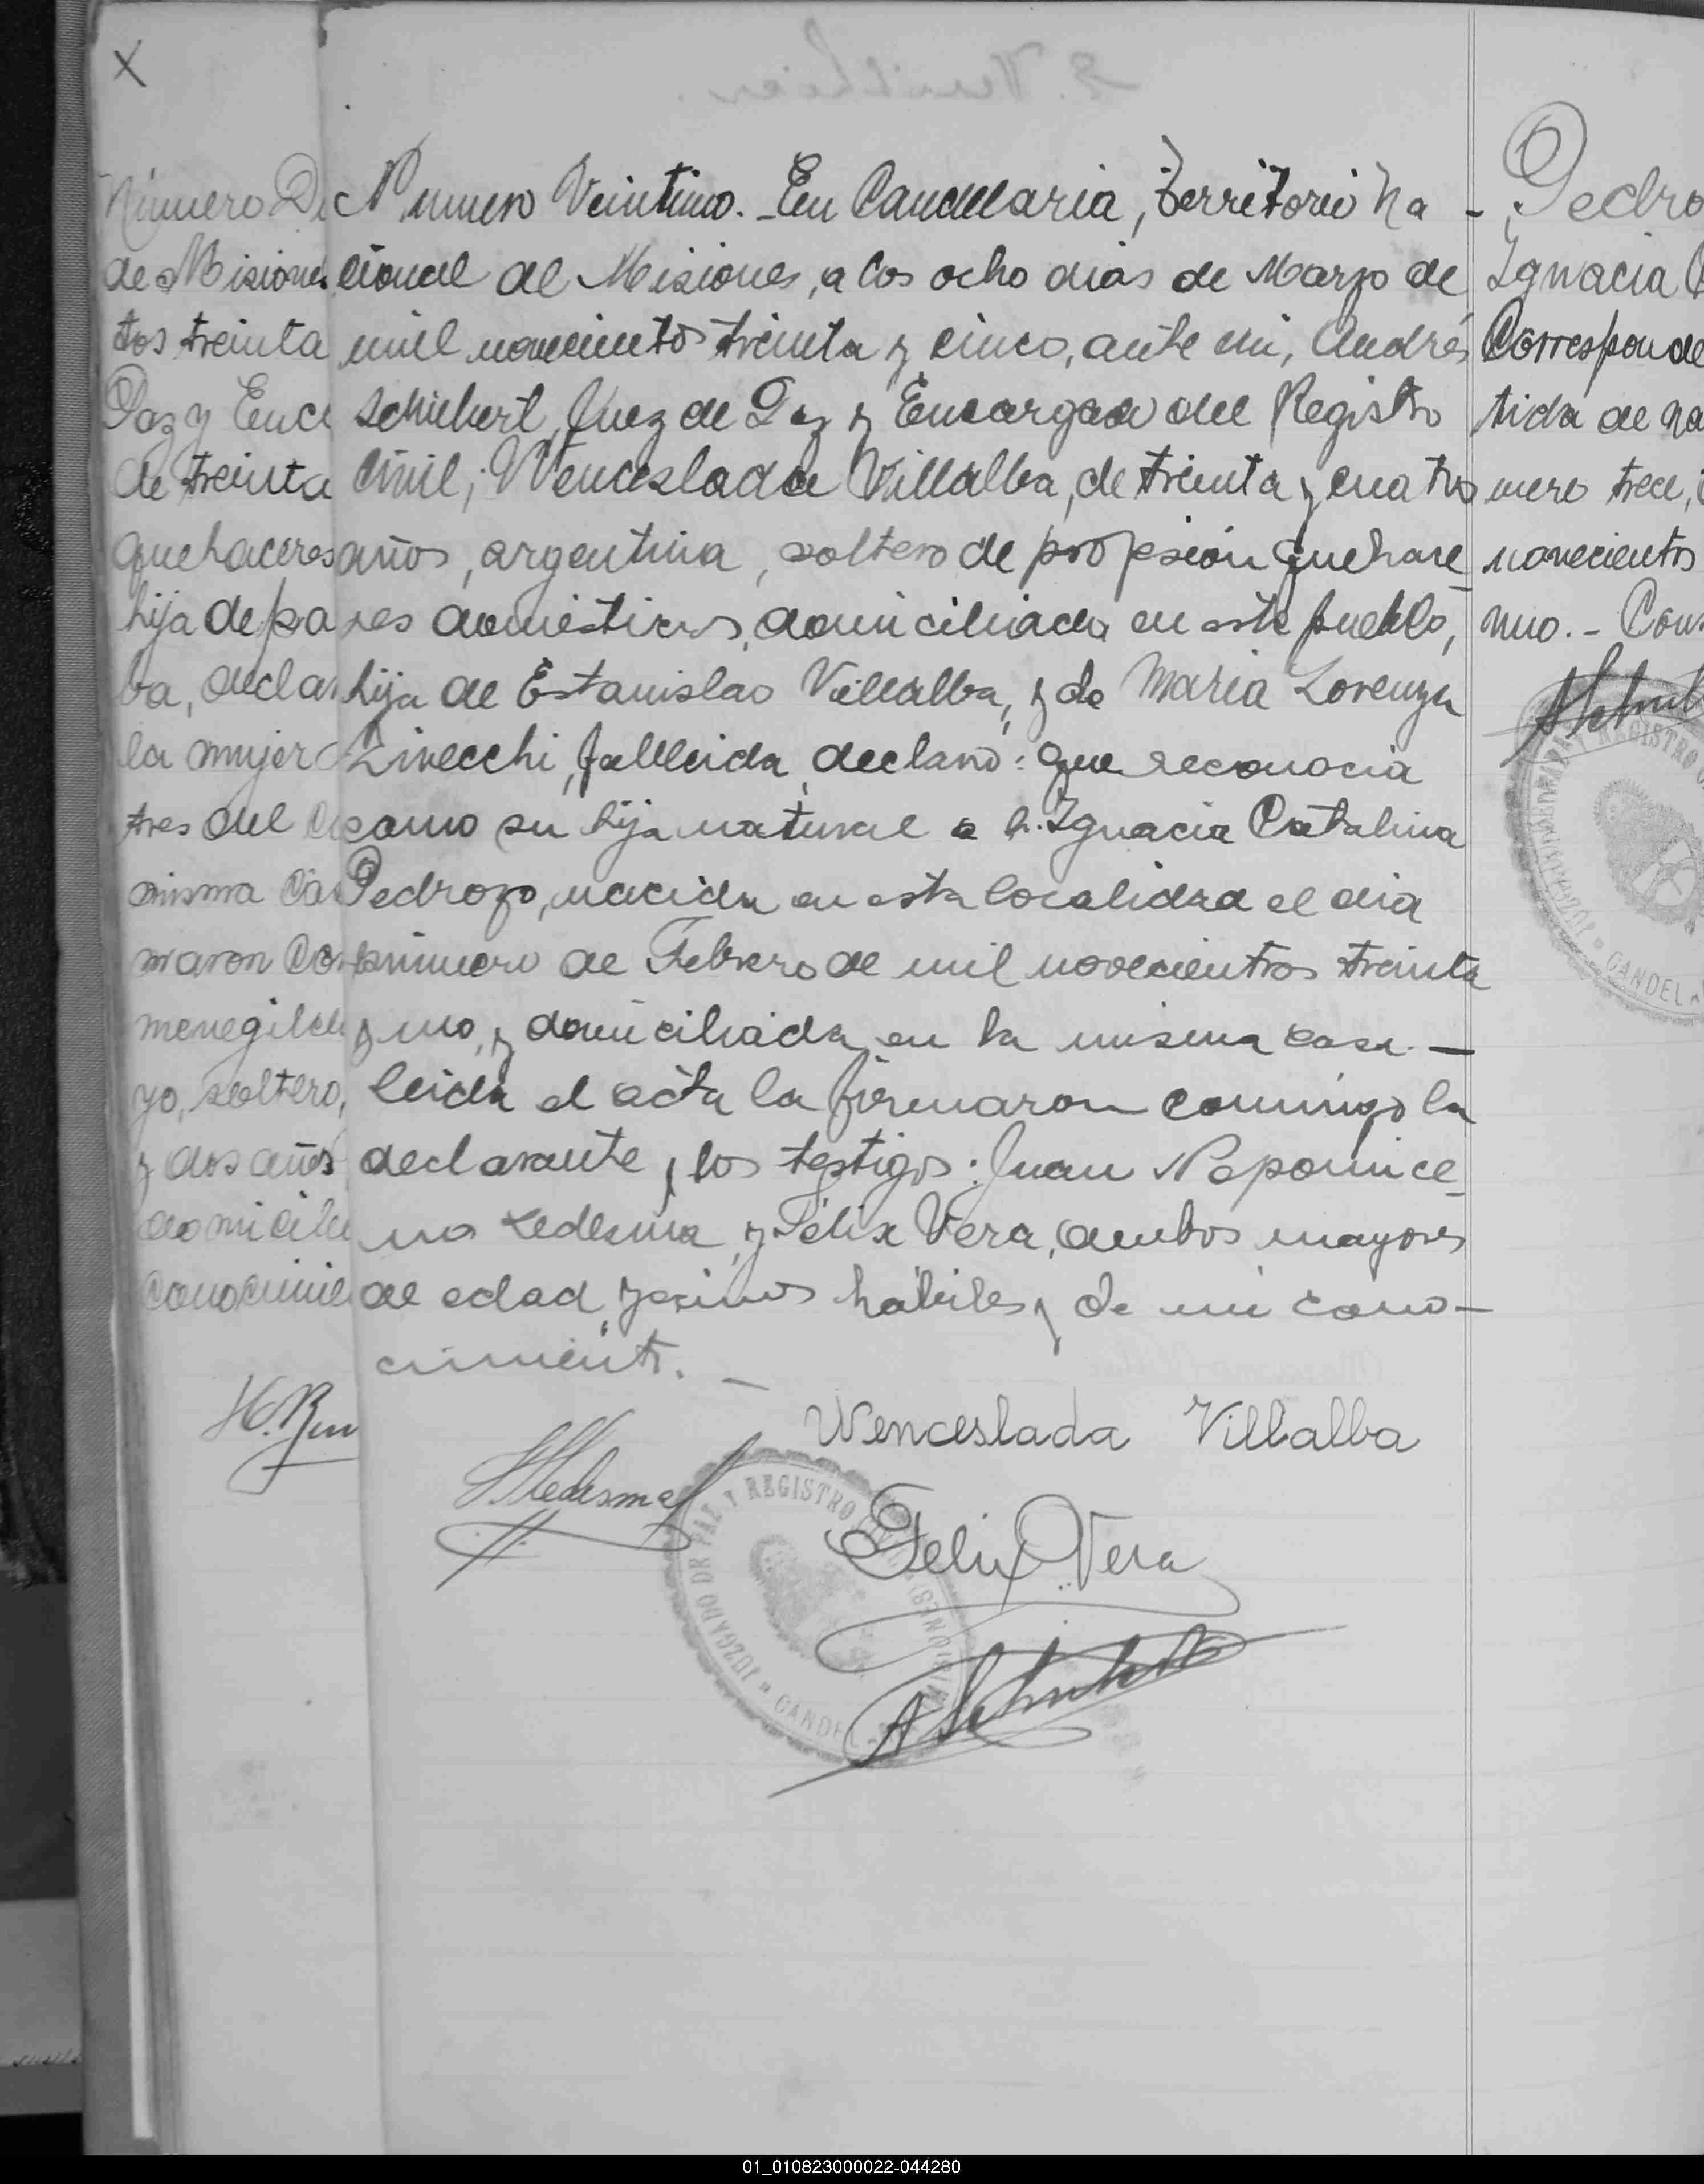 Numero Veintiuno. - En Candelaria, territorio Na-
cional de Misiones, a los ocho dias de Marzo de
mil novecientos treinta y cinco, ante mi, Andrés
Schubert, Juez de Paz y Encargado del Registro
Civil; Wenceslada Villalba, de treinta y cuatro
años, argentina, soltero de profesión quehace-
res domésticos, domiciliada en este pueblo,
hija de Estanislao Villalba, y de Maria Lorenza
fallecida, declaró: que reconocia
como su hija natural a Ignacia Catalina
Pedrozo, nacida en esta localidad el dia
primero de Febrero de mil novecientos treinta
y uno, y domiciliada en la misma casa. -
Leida el acta la firmaron conmigo la
declarante y los testigos: Juan Nepomuce-
no Ledesma, y Félix Vera, ambos mayores
de edad, vecinos hábiles y de mi cono-
cimiento. -
Wenceslada Villalba
Ledesma
Felix Vera
A Schubert
JUZGADO DE PAZ Y REGISTRO
CANDEL
(MISIONES)
Numero
de Misiones
tos treinta
Paz y Enc
de treinta
quehaceres
hija de pa
ba, decla
la mujer
tres del
misma Cas
maron Co
menegild
yo, soltero,
y dos años
domicili
conocimie
H. Rim
Pedro
Ignacia
Corresponde
tida de na
mero trece,
novecientos
uno. - Cons
A Schub
REGISTRO
CANDEL
01_010823000022-044280